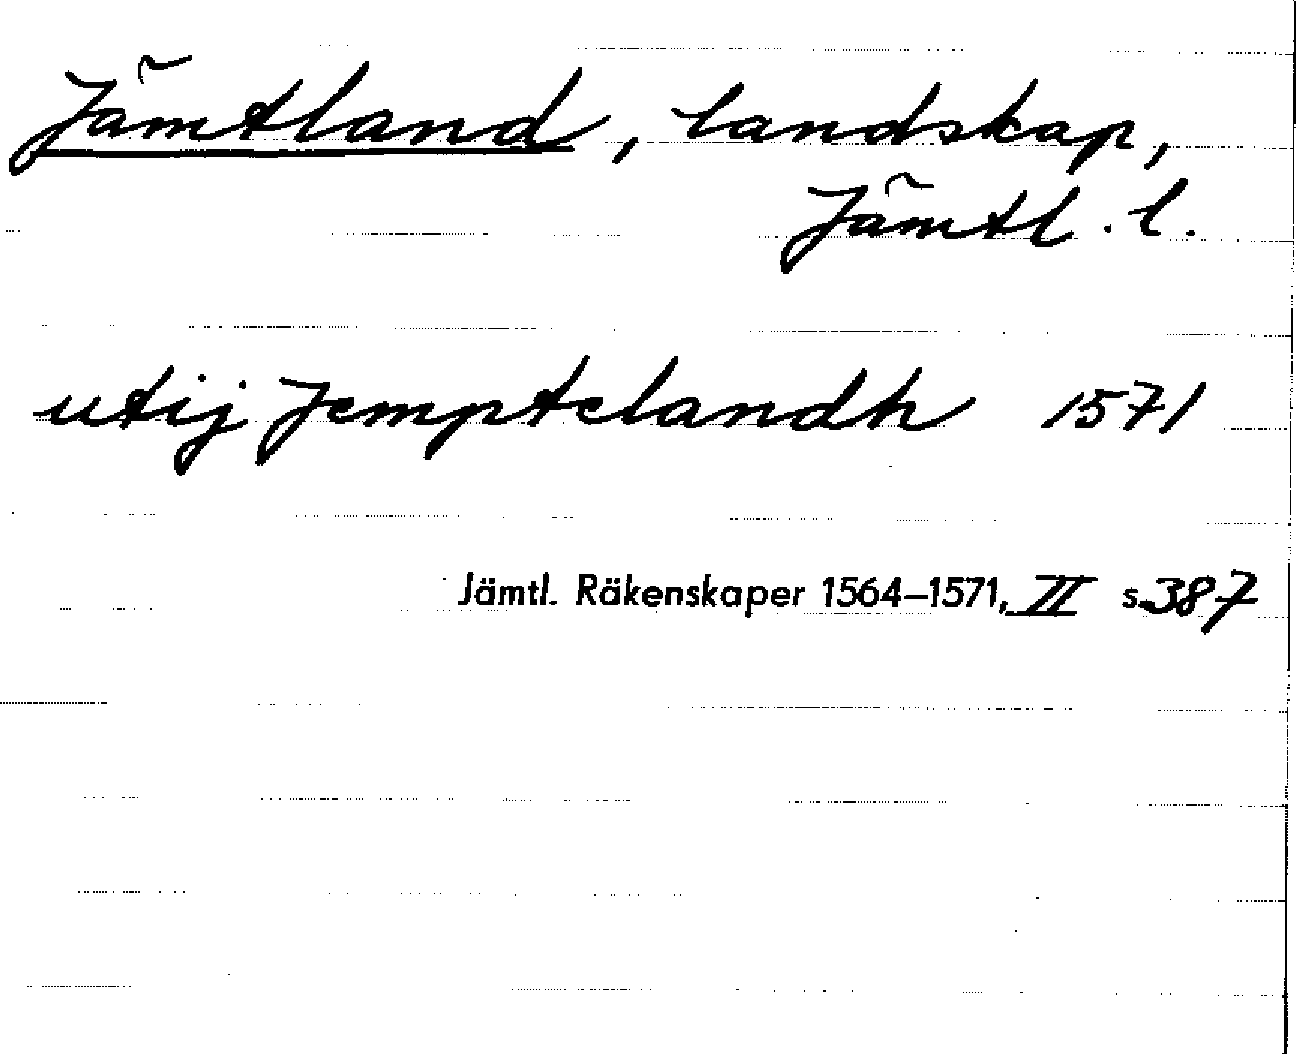 Jämtland, landskap,
Jämtl. l.
utij Jemptelandh 1571
Jämtl. Räkenskaper 1564–1571, II s. 387